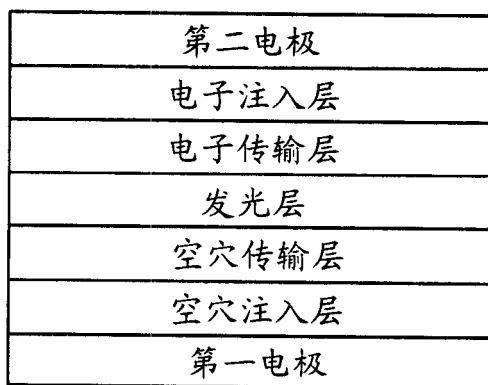 第二电极
电子注入层
电子传输层
发光层
空穴传输层
空穴注入层
第一电极